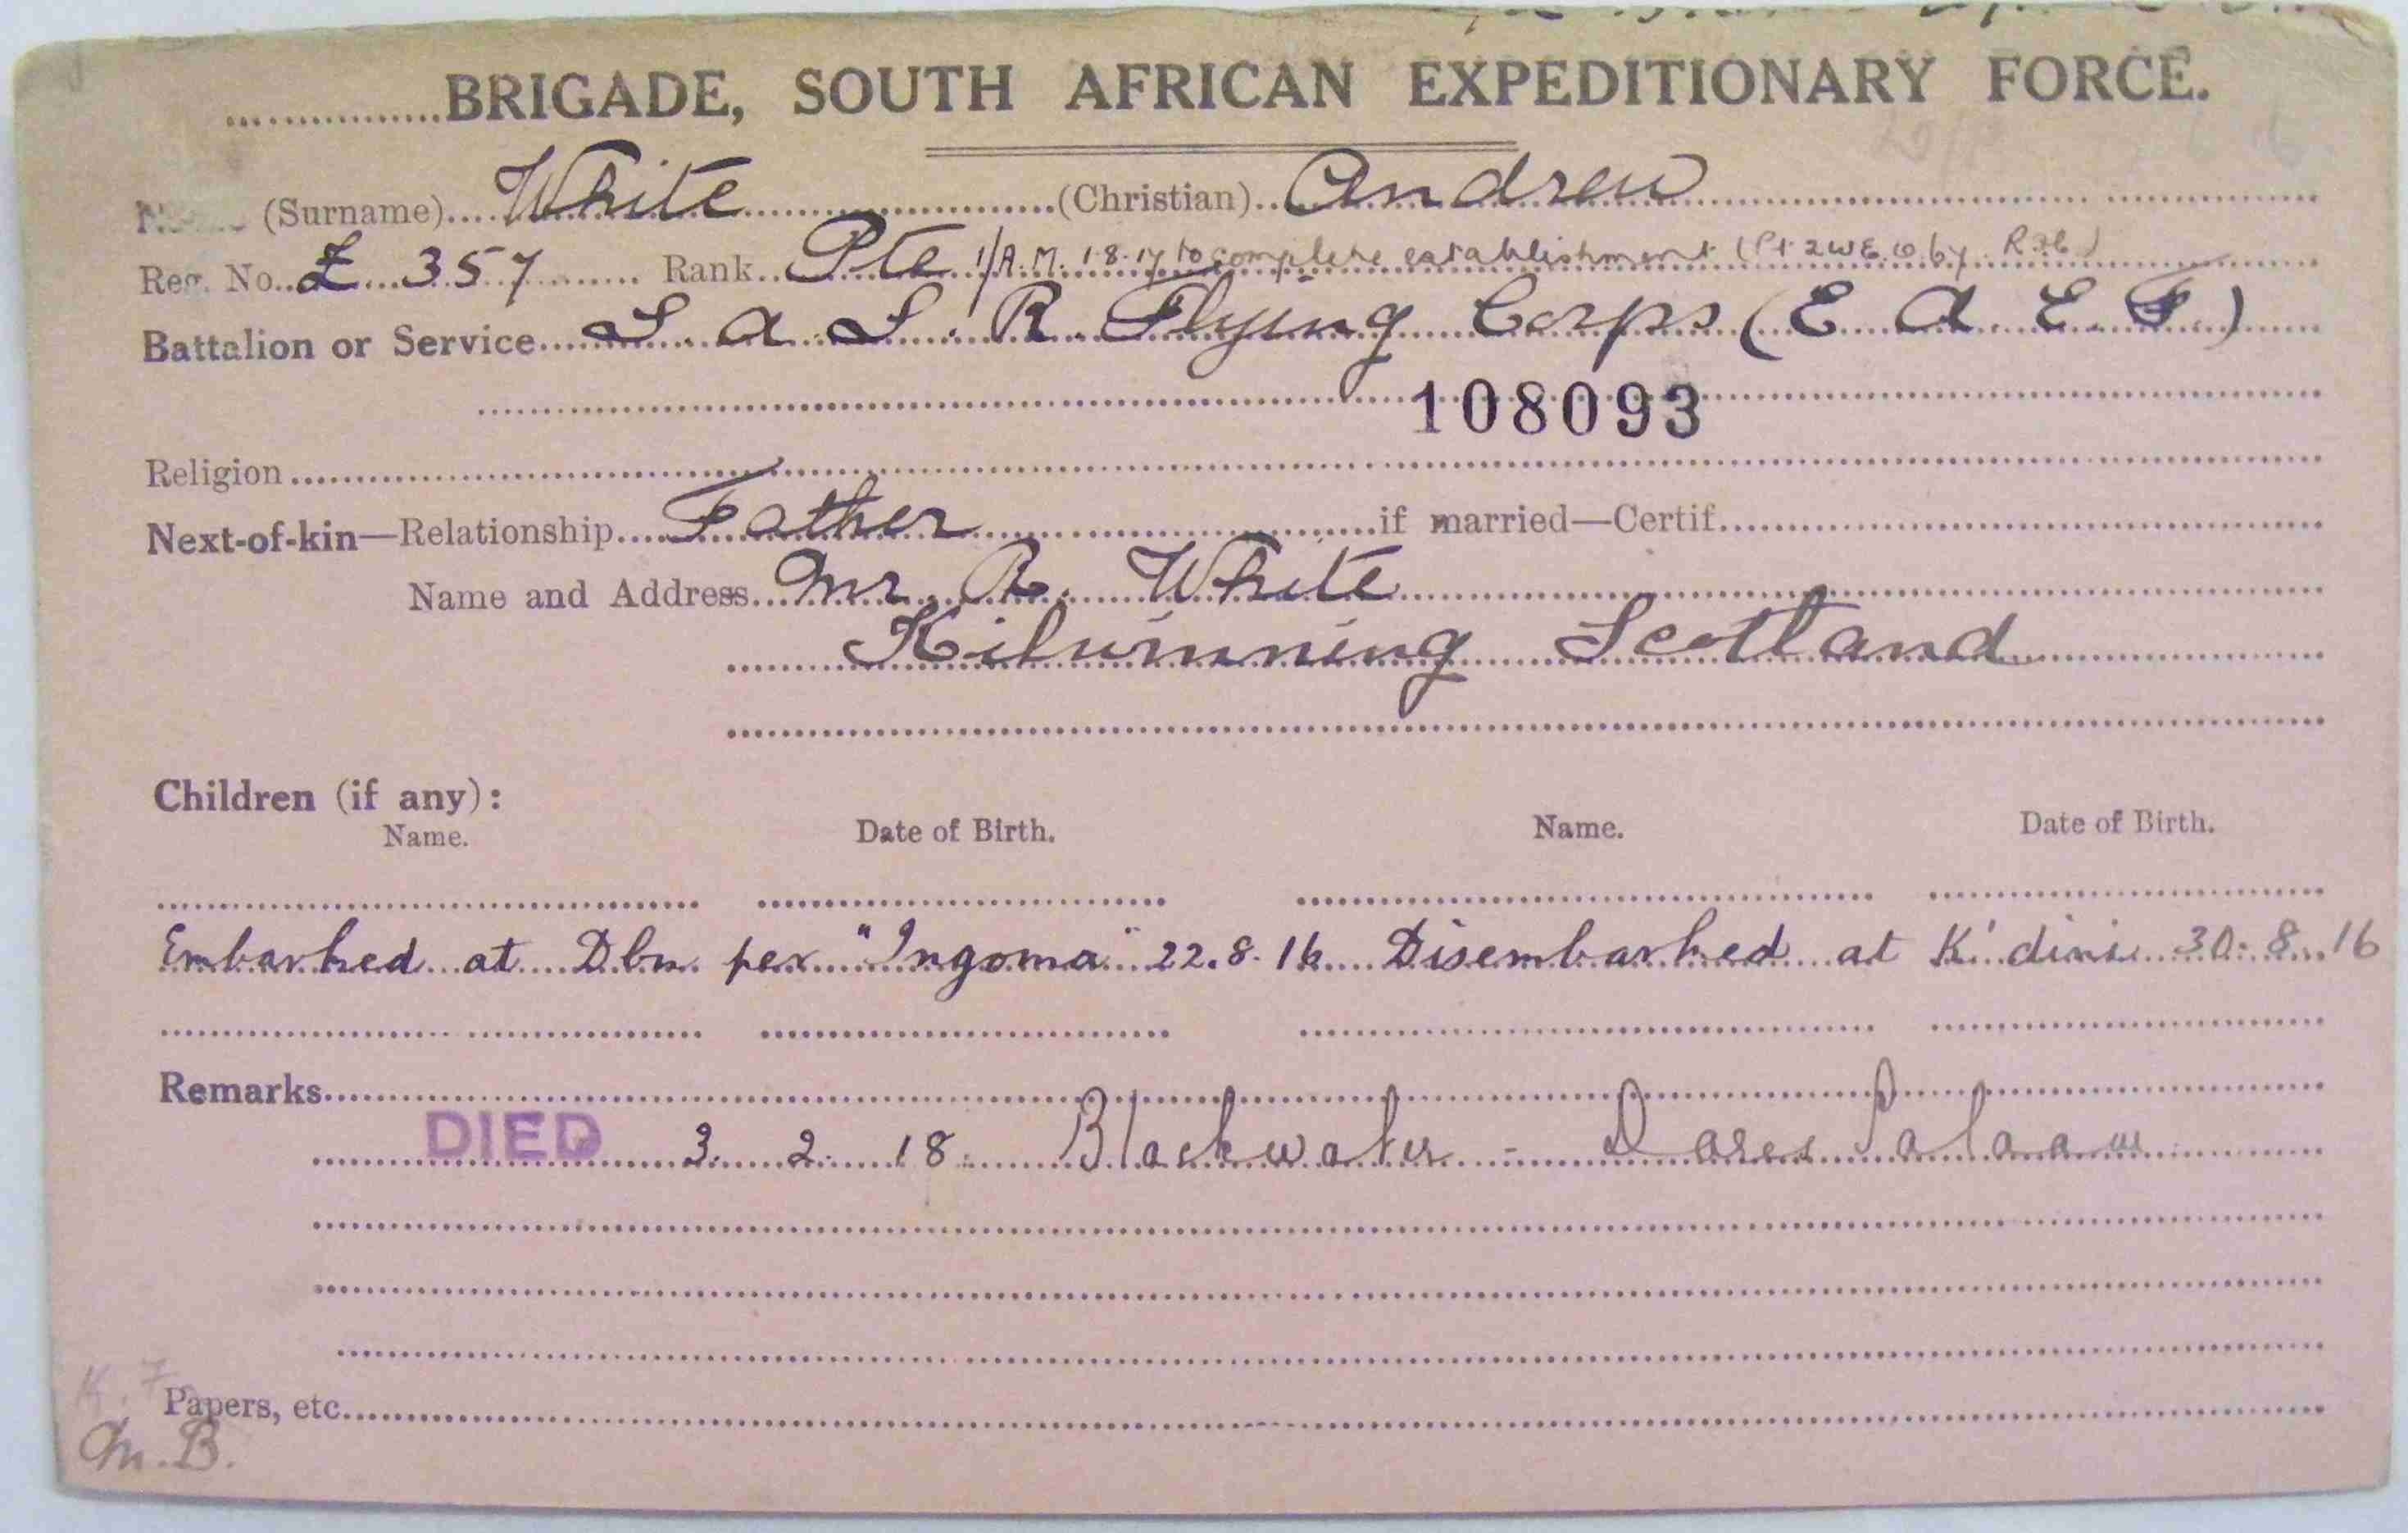 BRIGADE, SOUTH AFRICAN EXPEDITIONARY FORCE.
(Surname) White (Christian) Andrew
Reg. No. Z 357 Rank Pte 1/A.M. 1.8.17 to complete establishment (Pt 2
Battalion or Service S. A. S. R. Flying Corps (E A E F)
108093
Religion
Next-of-kin—Relationship Father if married—Certif.
Name and Address Mr. R. White
Kilwinning Scotland
Children (if any):
Name. Date of Birth. Name. Date of Birth.
Embarked at Dbn per "Ingoma" 22.8.16 Disembarked at K'dini 30.8.16
Remarks
DIED 3. 2. 18. Blackwater - Dares Salaam
Papers, etc.
M.B.